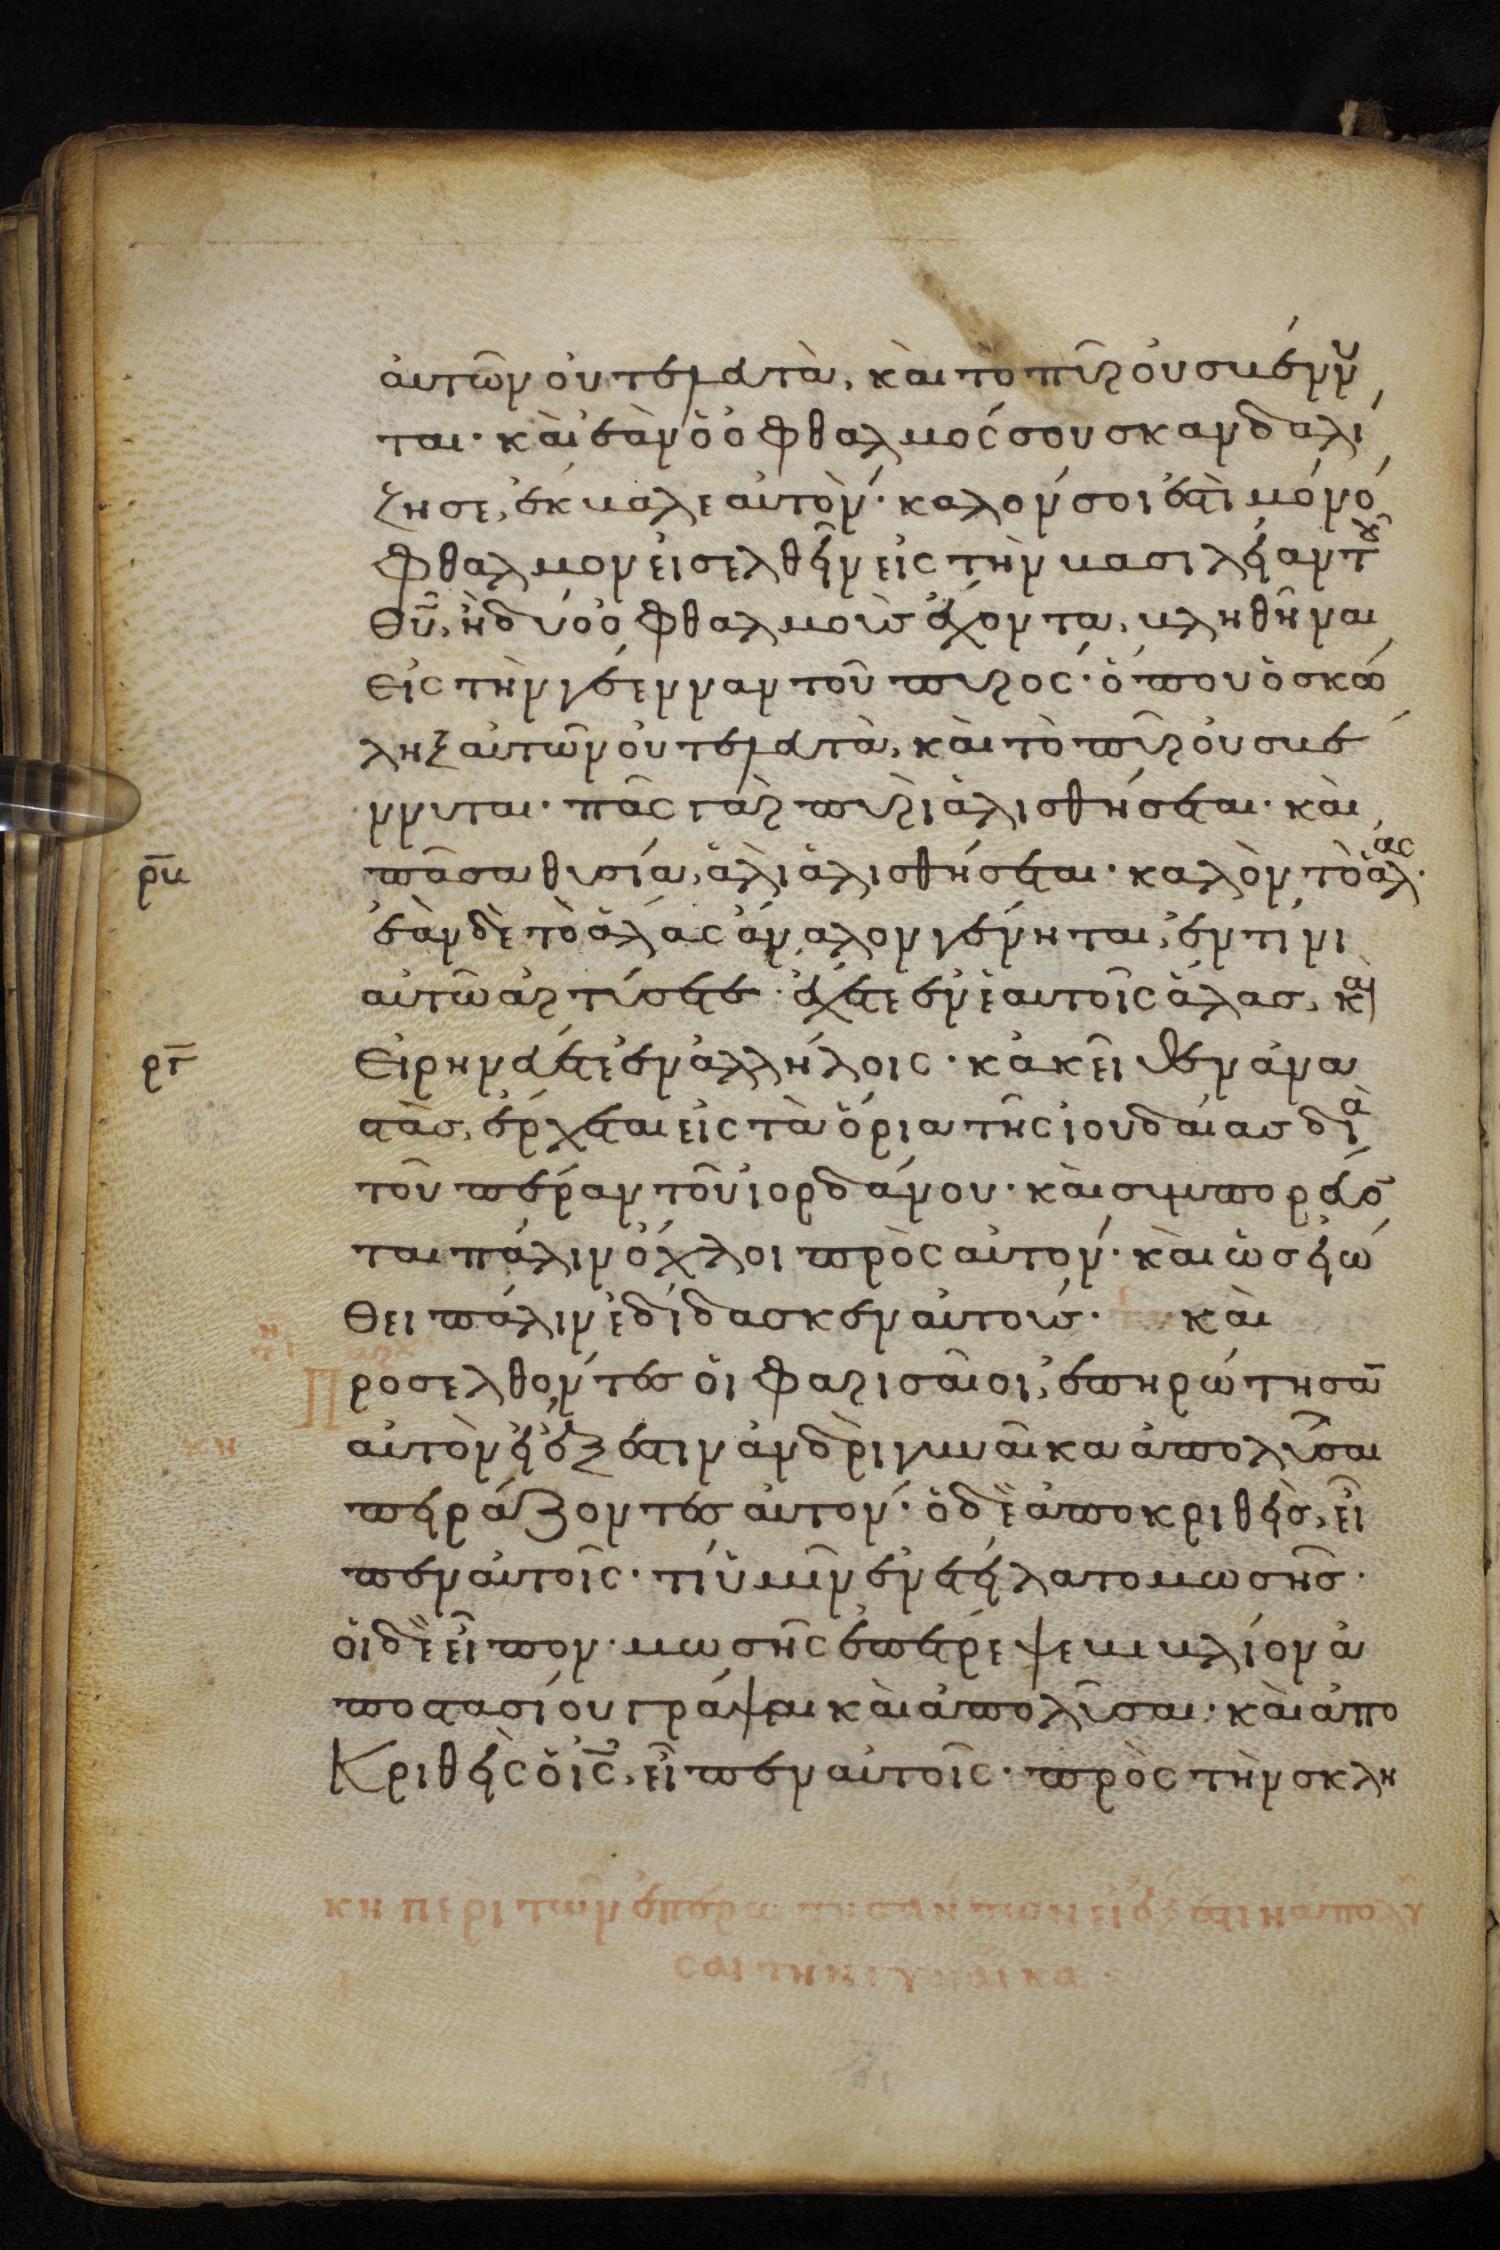 ἀυτῶν ὀυ τελευτὰ, κὰι τὸ πῦρ ὀυ σβέννυ
ται· κὰι ἐὰν ὁ ὀφθαλμός σου σκανδαλί
ζη σε, ἔκβαλε ἀυτὸν· καλόν σοι ἐστὶ μόνό
φθαλμον εἰσελθεῖν εἰς τὴν βασιλείαν τοῦ
θῦ, ἢ δύο ὀφθαλμοὺσ ἔχοντα, βληθῆναι
εἰς τὴν γέενναν τοῦ πυρός· ὅπου ὁ σκώ
ληξ ἀυτῶν ὀυ τελευτὰ, κὰι τὸ πῦρ ὀυ σβέ
ννυται· πᾶς γὰρ πυρὶ ἁλισθήσεται· κὰι
ρ̅β πᾶσα θυσία, ἁλὶ ἁλισθήσεται· καλὸν τὸ ἅλας·
ἐὰν δὲ τὸ ἅλας ἄναλον γένηται, ἐν τίνι
ἀυτῶ ἀρτύσετε· ἔχετε ἐν ἑαυτοῖς ἅλασ, κὰι
ρ̅γ εἰρηνεύετε ἐν ἀλλήλοις· κἀκεῖθεν ἀνα
στὰσ, ἔρχεται εἰς τὰ ὅρια τῆς ἰουδαίασ διὰ
τοῦ πέραν τοῦ ἰορδάνου· κὰι συμπορεύο̅
ται πάλιν ὄχλοι πρὸς ἀυτόν· κὰι ὡσ εἰώ
θει πάλιν ἐδίδασκεν ἀυτούσ· κὰι
Προσελθόντεσ ὁι φαρισᾶιοι, ἐπηρώτησα̅
κη ἀυτὸν εἰ ἔξεστιν ἀνδρὶ γυνᾶικα ἀπολῦσαι
πειράζοντεσ ἀυτόν· ὁ δὲ ἀποκριθεὶσ, εἶ
πεν ἀυτοῖς· τί ὑμῖν ἐνετείλατο μωσῆσ·
ὁι δὲ εἶπον· μωσῆς ἐπέτρεψε βιβλίον ἀ
ποστασίου γράψαι κὰι ἀπολῦσαι· κὰι ἀπο
Κριθεὶς ὁ ι̅ς̅, εἶπεν ἀυτοῖς· πρὸς τὴν σκλη
κη περὶ τῶν ἐπερωτησάντων εἰ ἔξεστιν ἀπολῦ
σαι τὴν γυναῖκα·